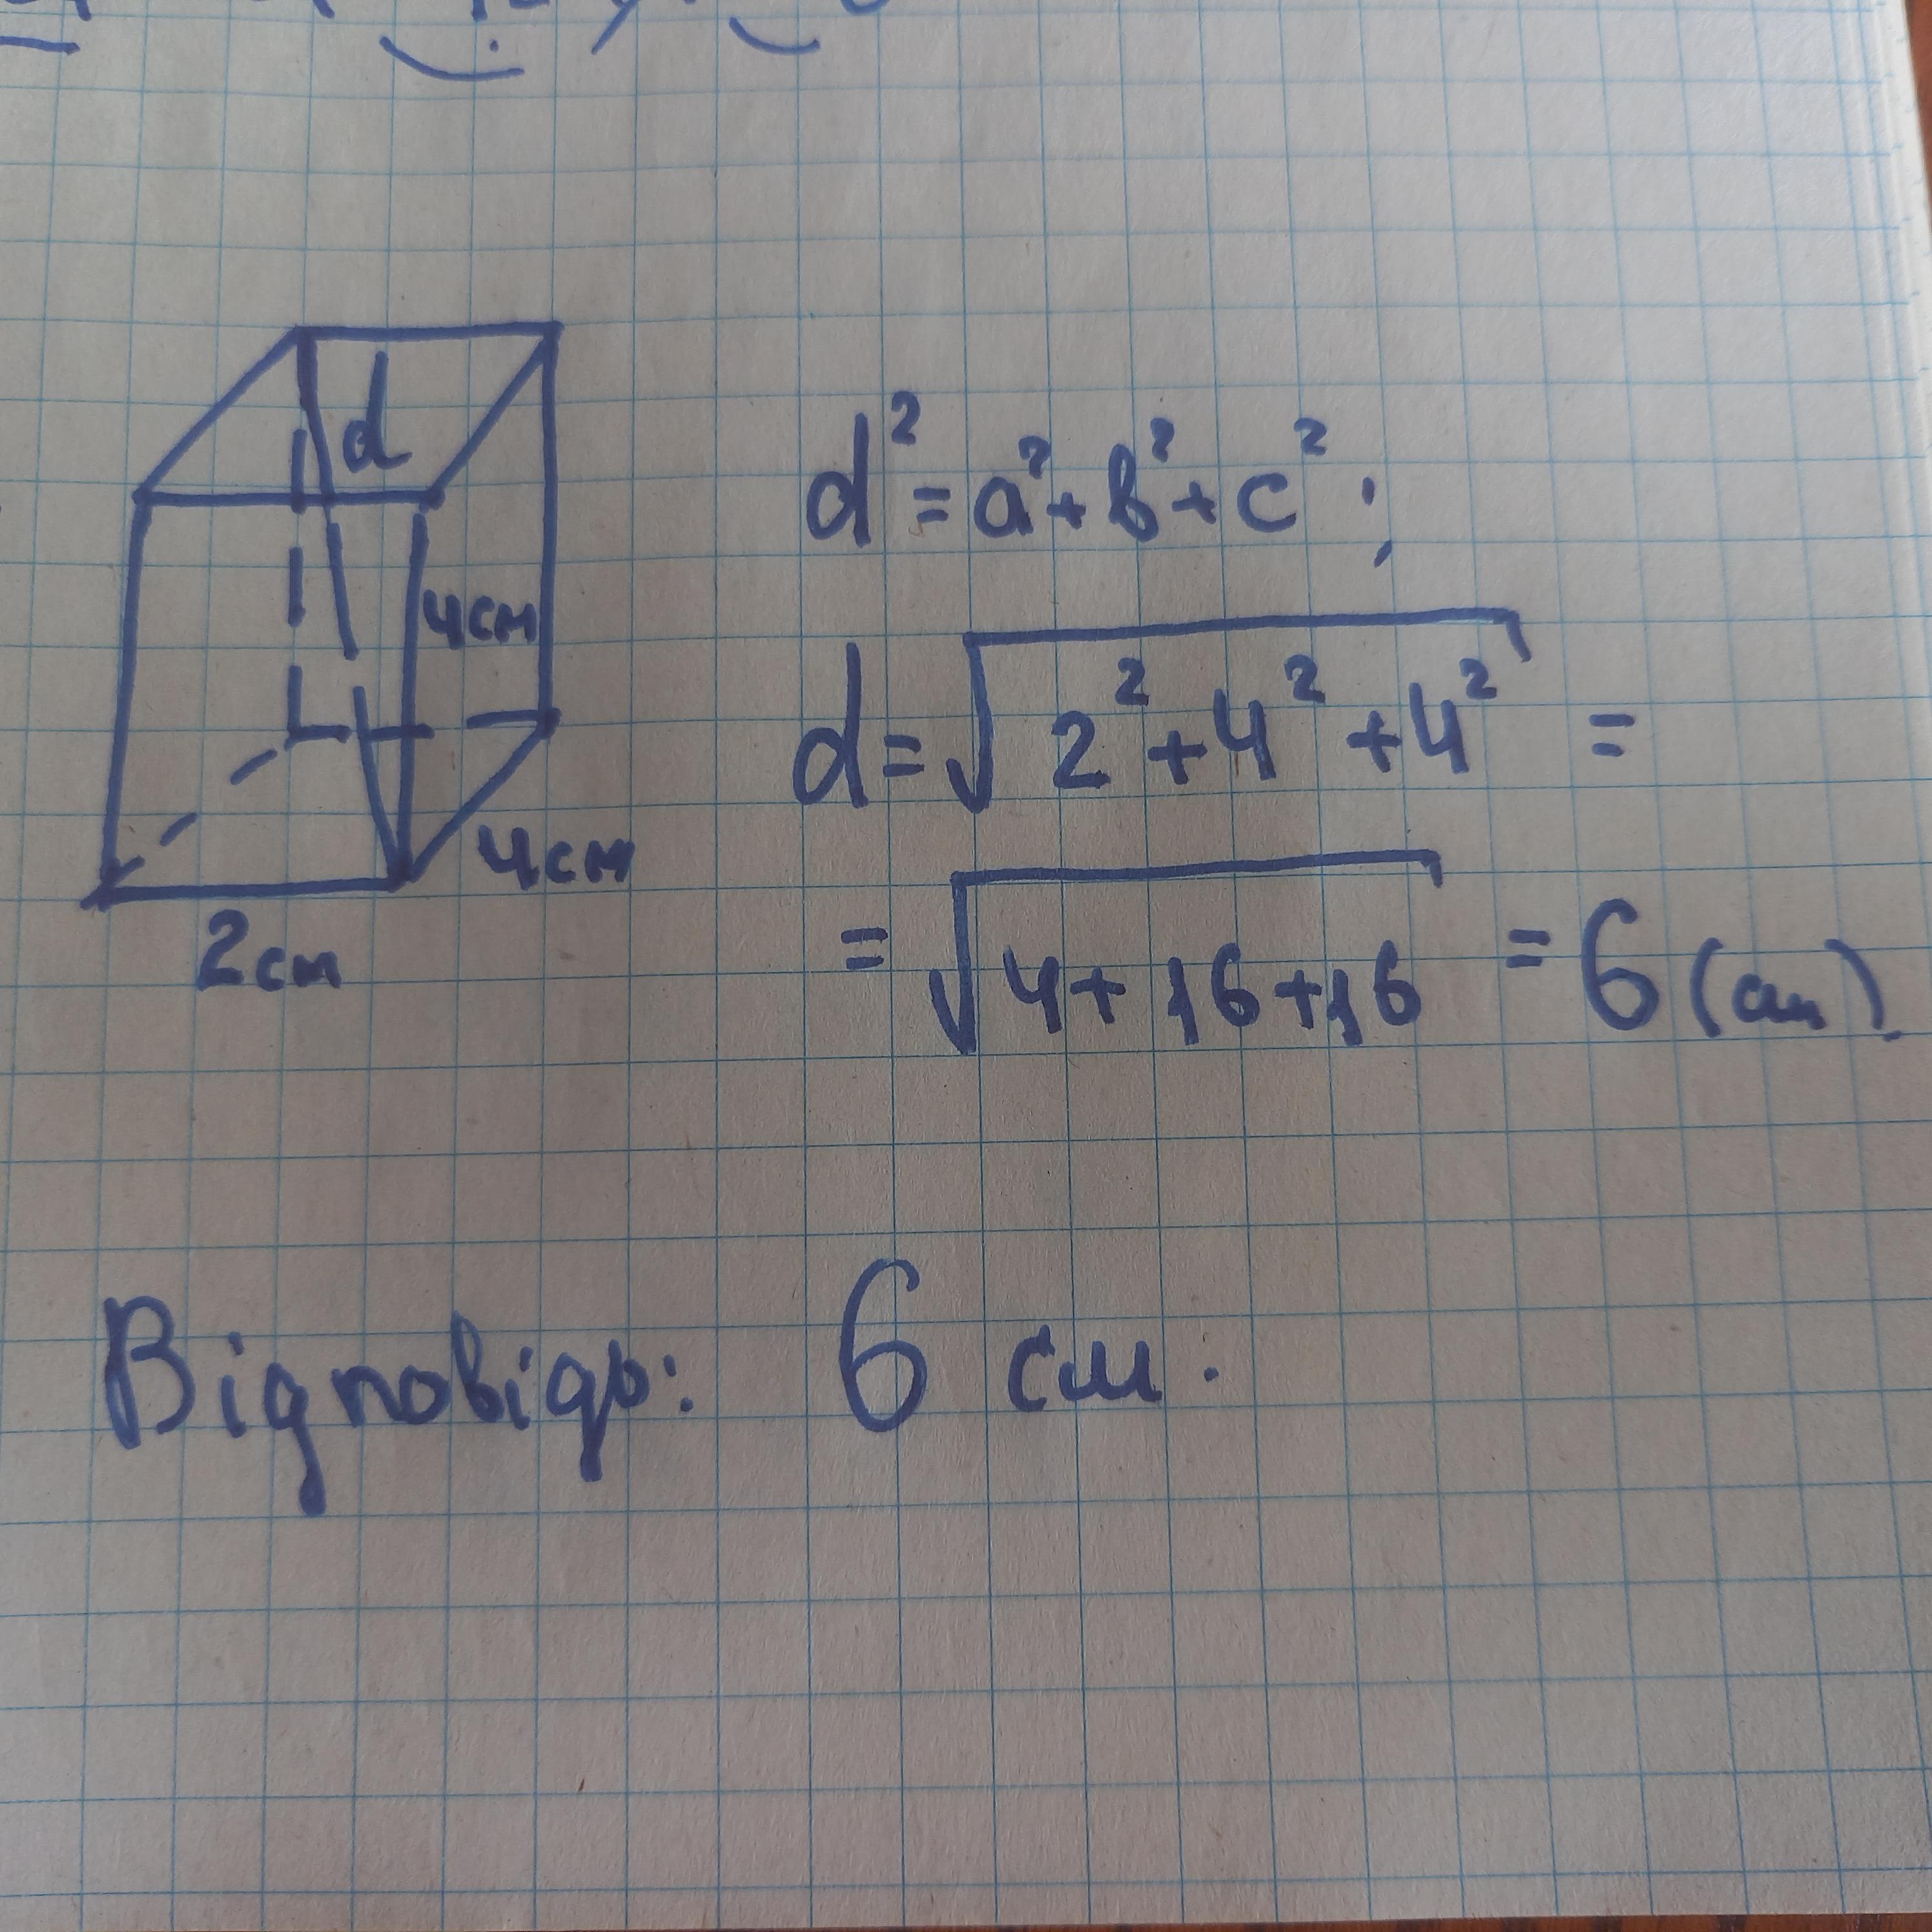 d
4см
4см
2см
d² = a² + b² + c² ;
d = √2² + 4² + 4² =
= √4 + 16 + 16 = 6 (см).
Відповідь: 6 см.